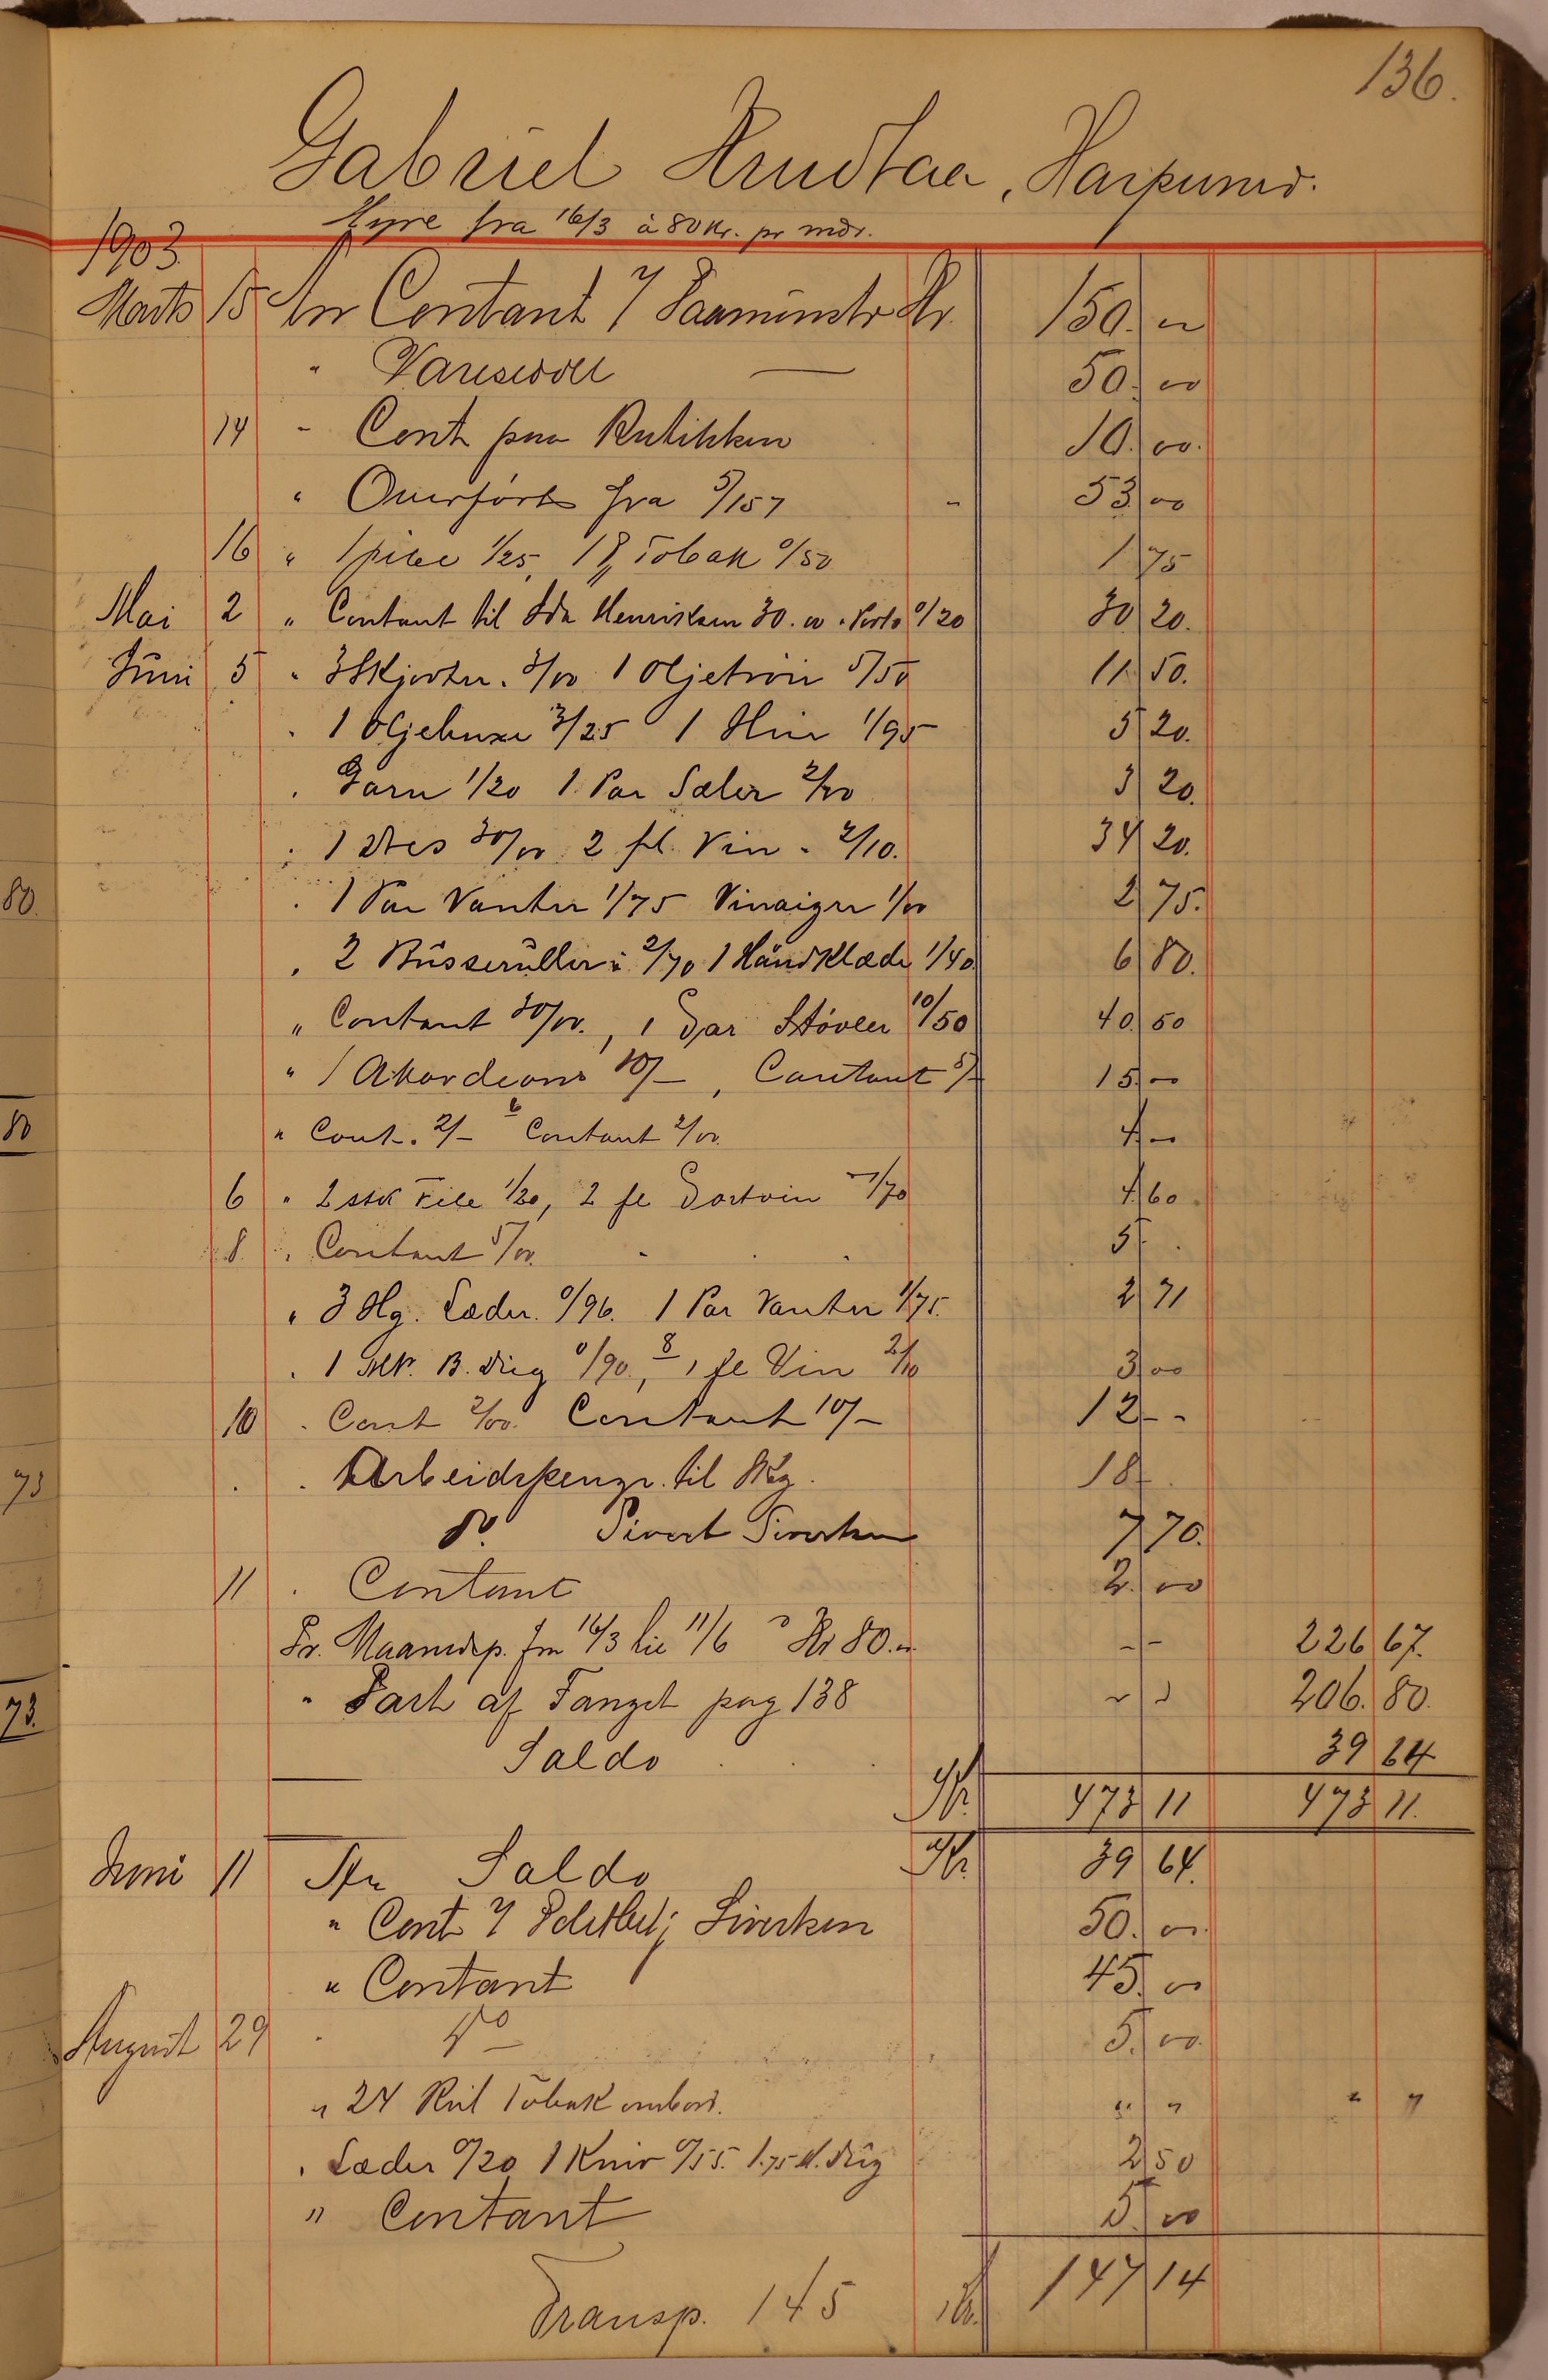 136.
Gabriel Knudtaa, Harpuner.
Hyre fra 16/3 à 80 Kr. pr mdr.
1903
Marts 15 An Contant Kr. 150. 00
" — 50. 00
14 - Cont paa Butikken 10. 00.
" Overført fra 5/157 - 53 00
16 " 1 pibe 1/25, 1 ℔ Tobak 0/50 1 75
Mai 2 " Contant til Ida Henriksen 30. 00 . Porto 0/20 30 20.
Juni 5 " 3 Skjorter. 3/00 1 Oljetrøie 5/50 11 50.
. 1 Oljebuxe 3/25 1 1/95 5 20.
. Garn 1/20 1 Par Sæler 2/00 3 20.
. 1 Dres 30/00 2 fl. Vin . 2/10. 34 20.
. 1 Par Vanter 1/75 1/00 2 75.
. 2 Busseruller à 2/70 1 Håndklæde 1/40 6 80.
" Contant 30/00. , 1 Par Støvler 10/50 40. 50
" 1 Akordeons 10/– , Contant 5/– 15 –
" Cont. 2/– 6 Contant 2/00. 4 –
6 " 2 stk File 1/20, 2 fl Portvin 1/70 4 60
8 . Contant 5/00. 5 –
" 3 Hg. Læder. 0/96. 1 Par Vanter 1/75. 2 71
. 1 B. dug 0/90., 8 1 fl Vin 2/10 3 00
10 . Cont 2/00. Contant 10/– 12 – -
. . Arbeidspenge til 18 –
do. Sivert Sivertsen 7 70.
11 . Contant 2. 00
Pr. Maanedsp. fra 16/3 til 11/6 à Kr 80. 00 - - 226 67.
" Part af Fangst pag 138 206. 80.
Saldo 39 64
Kr. 473 11 473 11.
Juni 11 An Saldo Kr. 39 64.
" Cont Sivertsen 50. 00.
" Contant 45. 00
August 29 . do 5. 00.
" 24 Rul Tobak ombord. " " " "
. Læder 0/20 1 Kniv 0/55. 1.75 dug 2 50
" Contant 5. 00
Transp. 145 Kr. 147 14
80.
80
73
73.